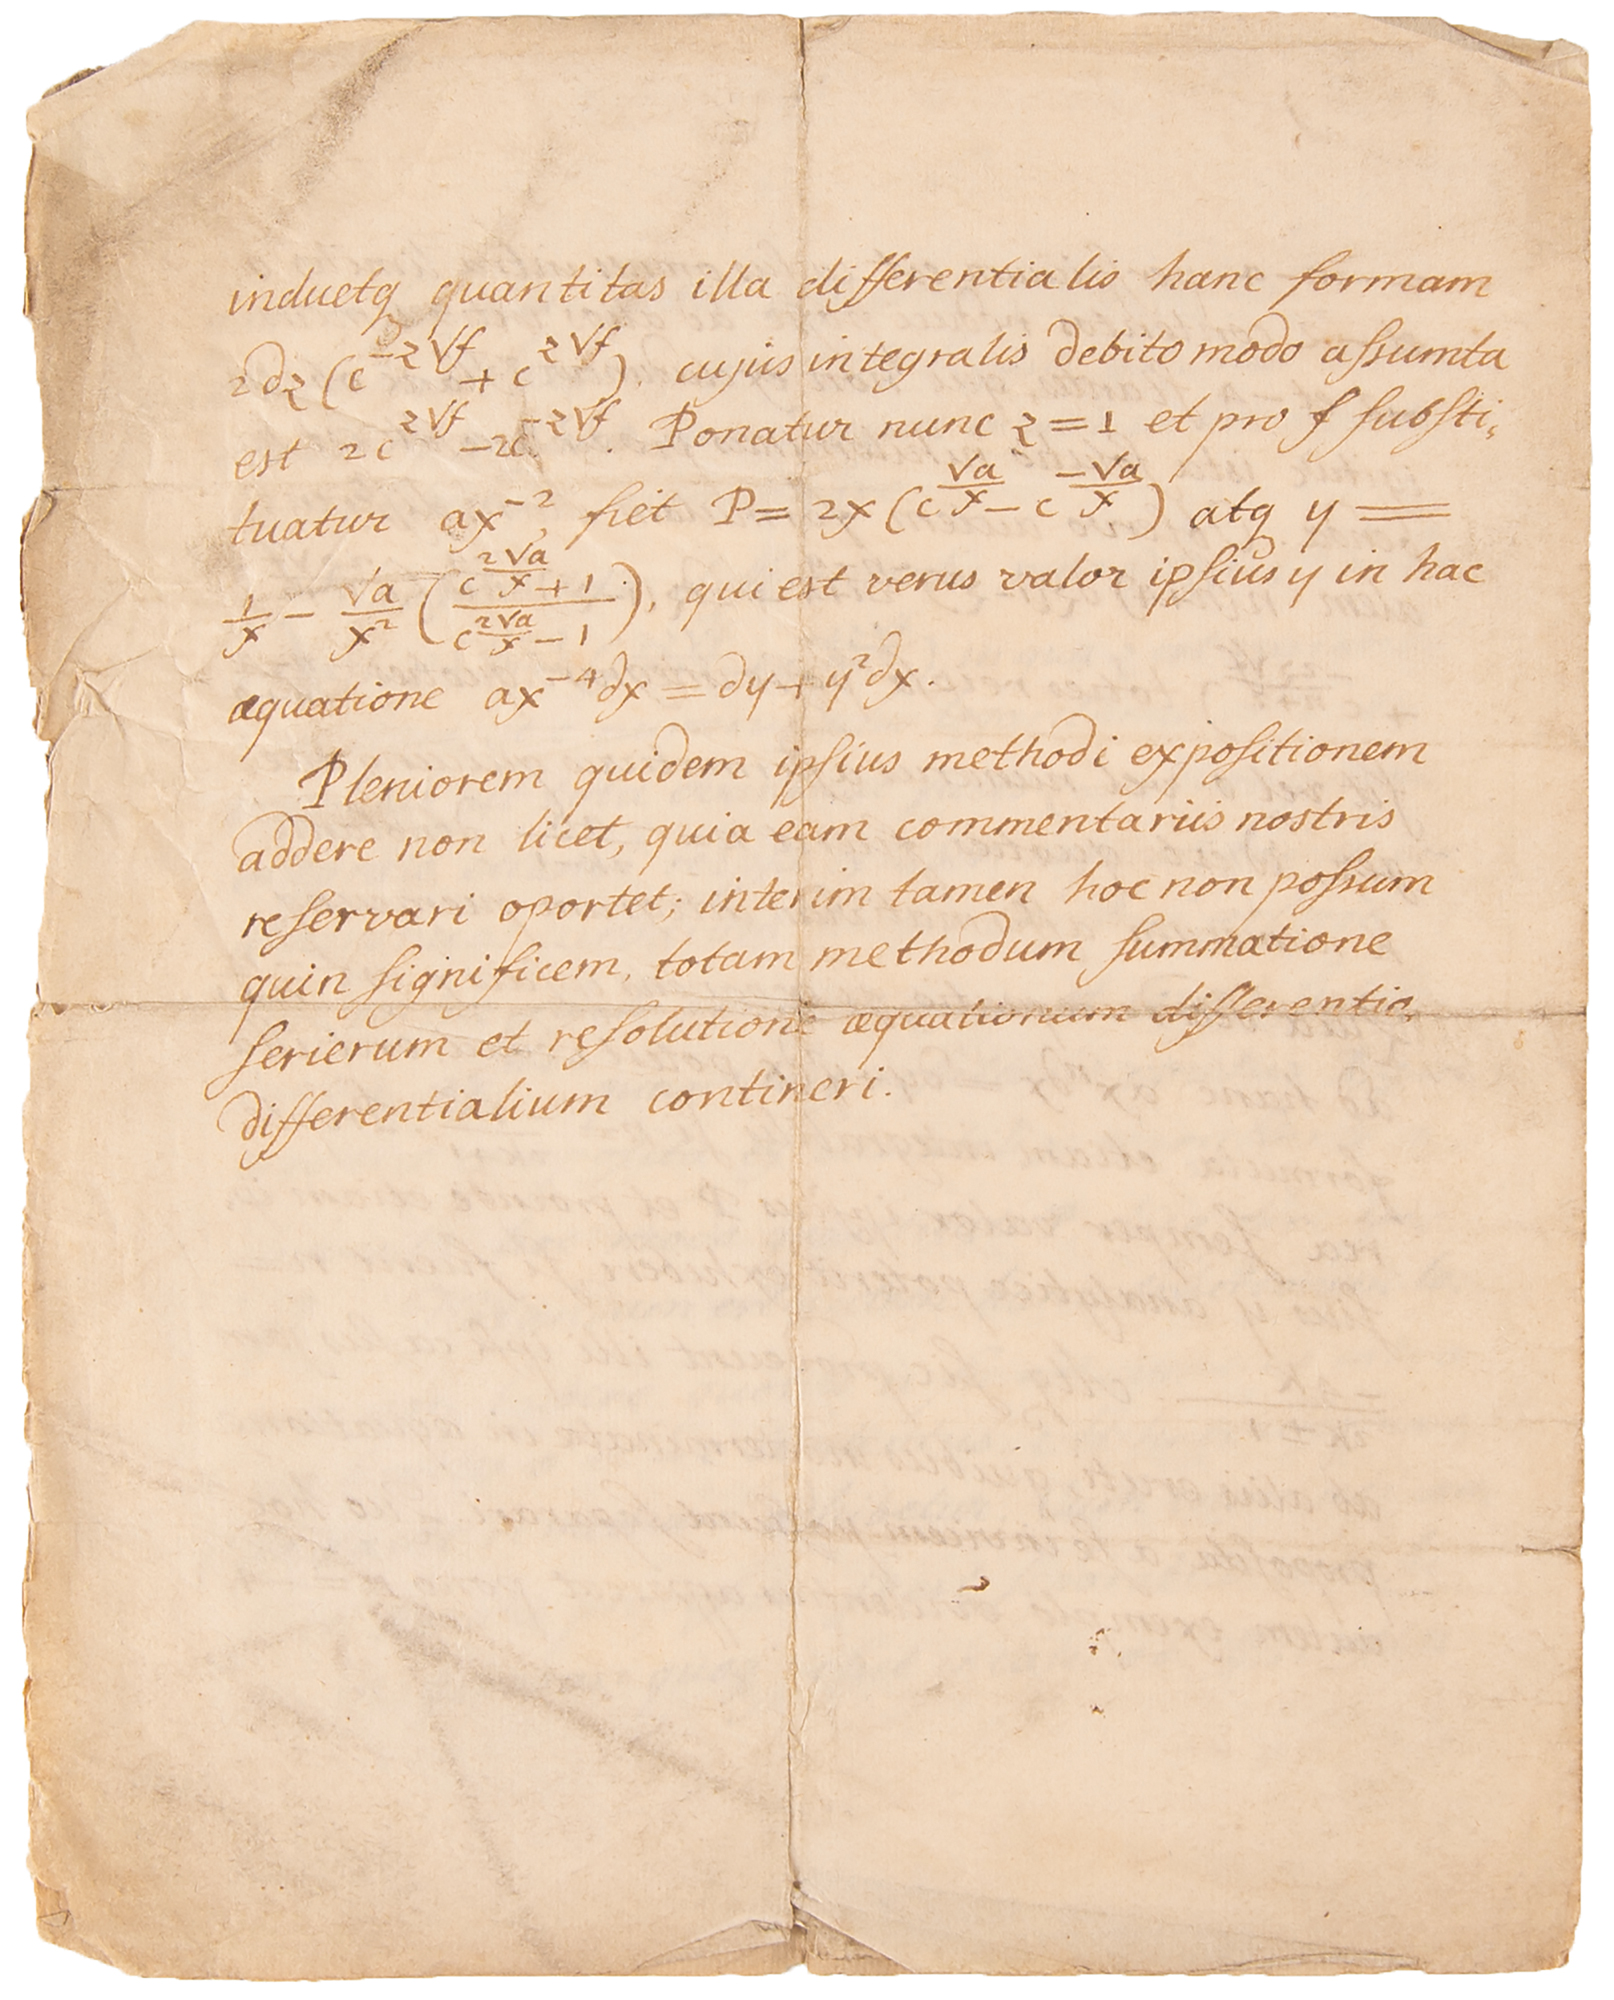 induetq quantitas illa differentialis hanc formam
2dz (c^{-z√f} + c^{z√f}). cujus integralis debito modo assumta
est 2c^{z√f} - 2c^{-z√f}. Ponatur nunc z = 1 et pro f substi-
tuatur ax^{-2}, fiet P = 2x (c^{√a/x} - c^{-√a/x}) atq y =
1/x - √a/x² ((c^{2√a/x} + 1)/(c^{2√a/x} - 1)), qui est verus valor ipsius y in hac
æquatione ax^{-4}dx = dy + y²dx.
Pleniorem quidem ipsius methodi expositionem
addere non licet, quia eam commentariis nostris
reservari oportet; interim tamen hoc non possum
quin significem, totam methodum summatione
serierum et resolutione æquationum differentio,
differentialium contineri.